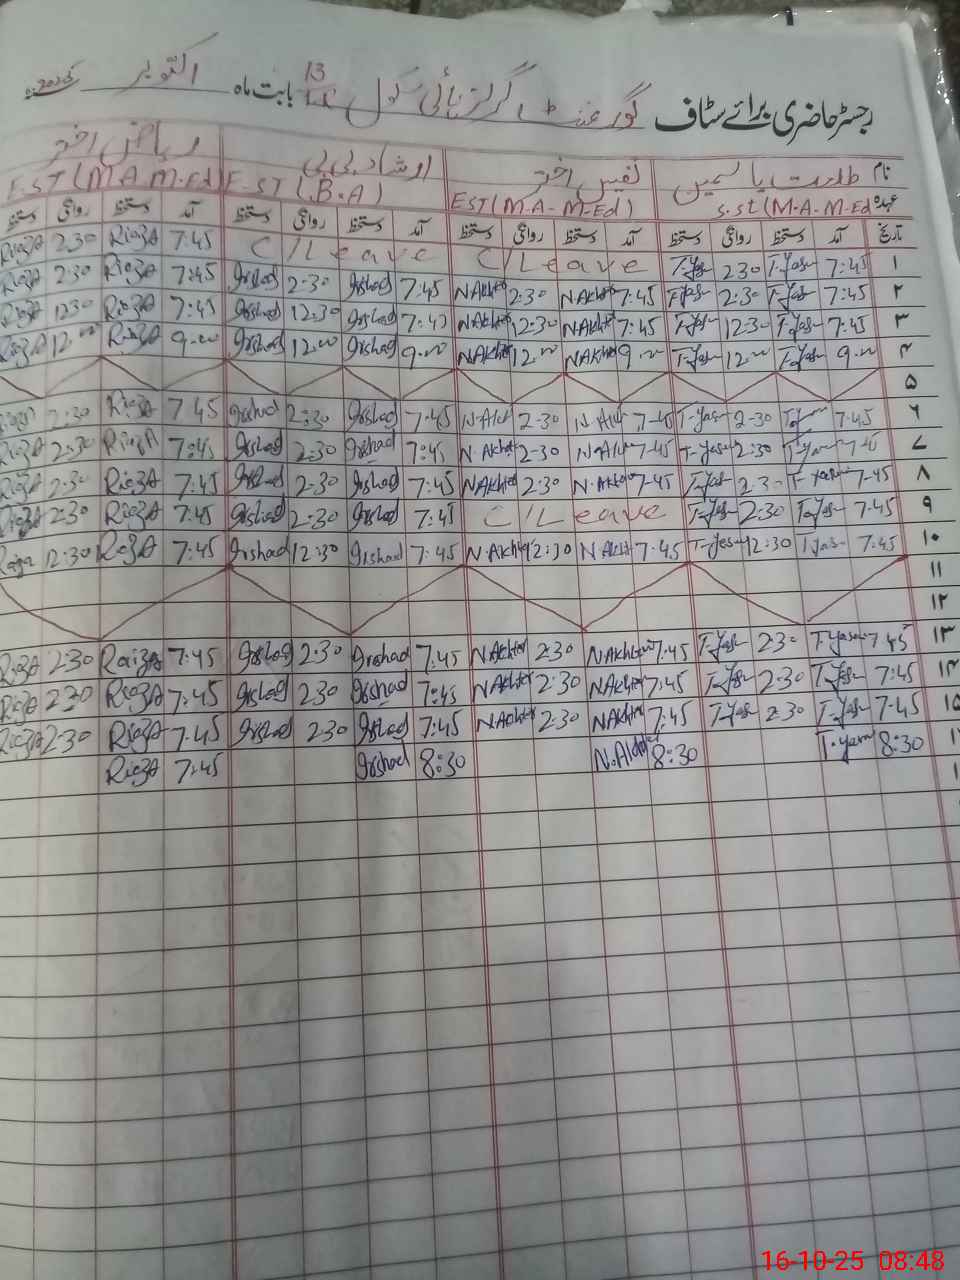 رجسٹر حاضری برائے سٹاف گورنمنٹ گرلز ہائی سکول 13 بابت ماہ اکتوبر
نام طلعت یاسمین نفیس اختر ارشاد بی بی ریاض اختر
عہدہ S.St (M.A-M-Ed EST (M.A-M-Ed) E.ST (B.A) E.ST (M.A M.Ed)
تاریخ آمد دستخط روانگی دستخط آمد دستخط روانگی دستخط آمد دستخط روانگی دستخط آمد دستخط روانگی دستخط
۱ 7:45 T-Yas 2 30 T-Yas C/Leave C/Leave 7:45 RiazA 2.30 RiazA
۲ 7:45 T-Yas 2:30 T-Yas 7:45 N.Akhtr 2:30 N.Akhtr 7:45 Irshad 2:30 Irshad 7:45 RiazA 2:30 RiazA
۳ 7:45 T-Yas 12:30 T-Yas 7:45 N.Akhtr 12:30 N.Akhtr 7:45 Irshad 12:30 Irshad 7:45 RiazA 12:30 RiazA
۴ 9.00 T-Yas 12.00 T-Yas 9.00 N.Akhtr 12.00 N.Akhtr 9.00 Irshad 12.00 Irshad 9.00 RiazA 12.00 RiazA
۵
۶ 7.45 2-30 T-Yas 7-45 N.Akh 2-30 N.Akh 7.45 Irshad 2:30 Irshad 7.45 RiazA 2:30
۷ 7-45 T-Yasm 2:30 T-Yasm 7-45 N.Akh 2-30 N.Akhtr 7:45 Irshad 2:30 Irshad 7:45 RiazA 2:30 RiazA
۸ 7-45 T-Yasm 2.30 T-Yas 7-45 N.Akhtar 2:30 N.Akhtr 7:45 Irshad 2:30 Irshad 7:45 RiazA 2:30 RiazA
۹ 7.45 T-Yas 2:30 T-Yas C/Leave 7:45 Irshad 2:30 Irshad 7:45 RiazA 2:30 RiazA
۱۰ 7:45 T-Yas 12:30 T-Yas 7.45 N.Akh 12:30 N.Akhtr 7:45 Irshad 12:30 Irshad 7:45 RiazA 12:30 Riaz
۱۱
۱۲
۱۳ 7:45 T-Yasm 2:30 T-Yas 7:45 N.Akhtar 2:30 N.Akhtar 7:45 Irshad 2:30 Irshad 7:45 RaizA 2:30 RiazA
۱۴ 7:45 T-Yas 2:30 T-Yas 7:45 N.Akhtr 2:30 N.Akhtar 7:45 Irshad 2:30 Irshad 7:45 RiazA 2:30 RiazA
۱۵ 7-45 T-Yas 2:30 T-Yas 7:45 N.Akhtr 2:30 N.Akhtar 7:45 Irshad 2:30 Irshad 7:45 RiazA 2:30 RiazA
8:30 T.Yasm 8:30 N.Akhtr 8:30 Irshad 7:45 RiazA
16-10-25 08:48